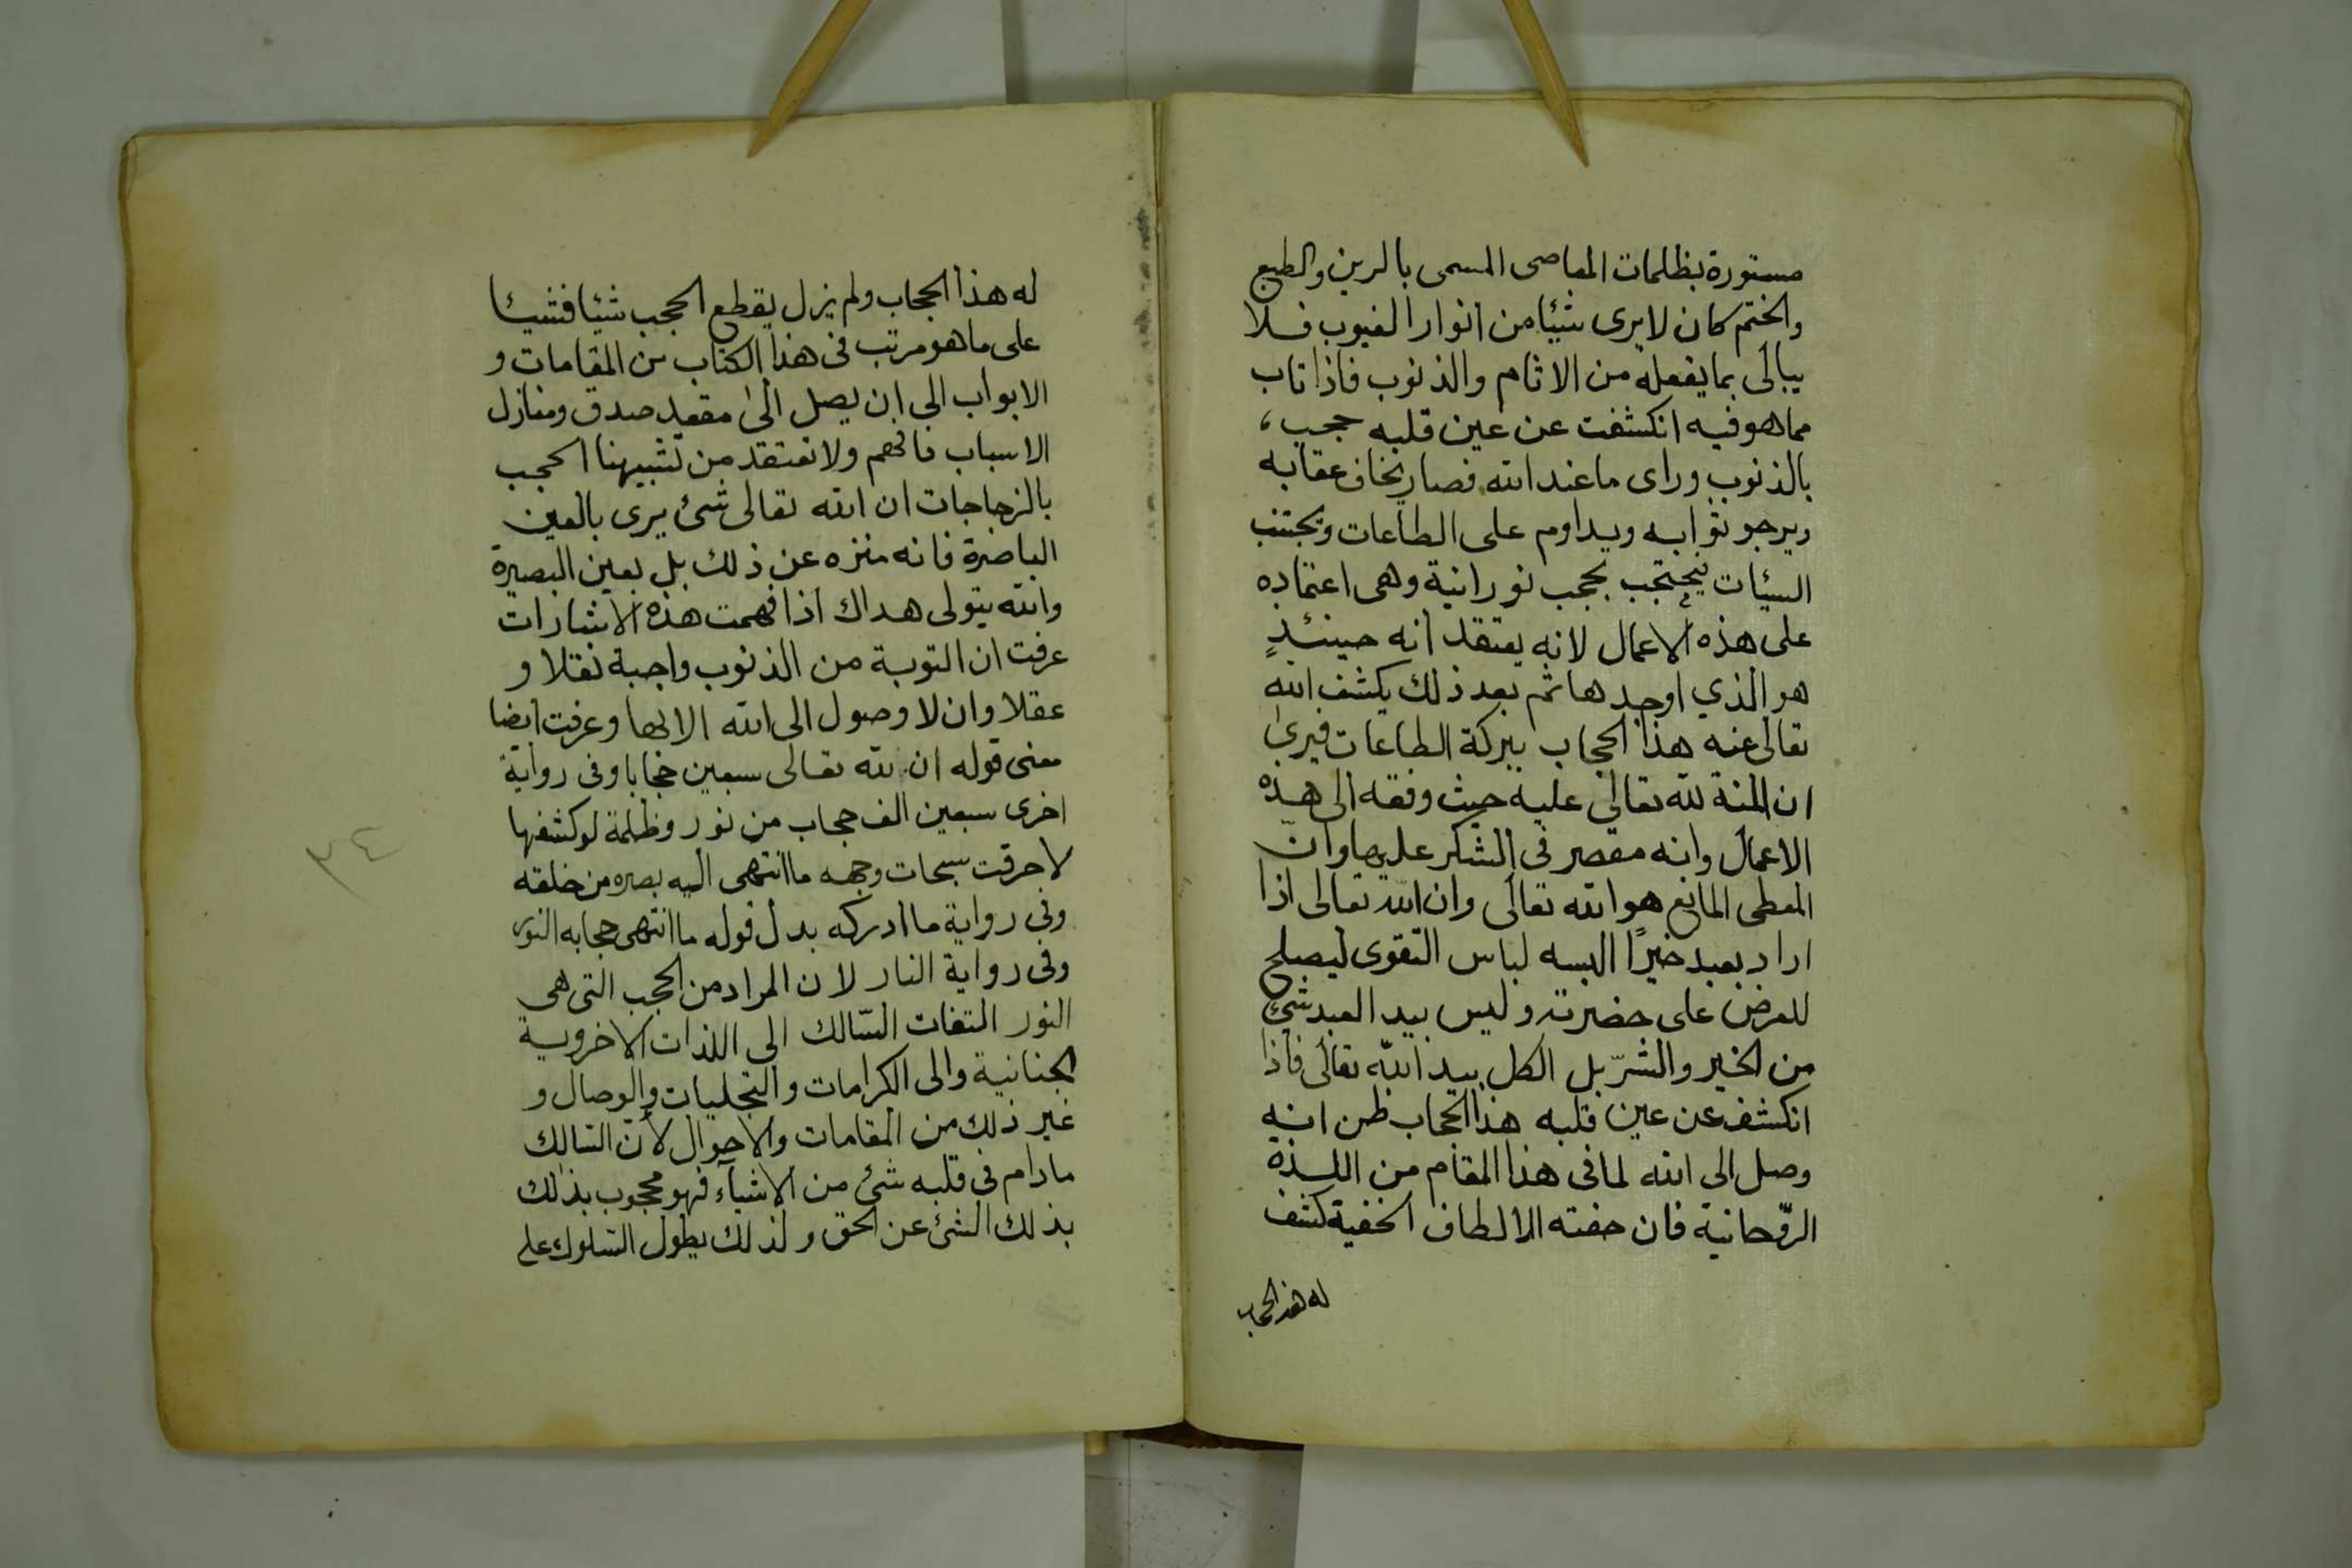 مستورة بظلمات المعاصى المسمى بالرين والطبع
والختم كان لا يرى شيئا من انوار الغيوب فلا
يبالى بما يفعله من الاثام والذنوب فاذا تاب
مما هو فيه انكشفت عن عين قلبه حجب،
بالذنوب وراى ما عند الله فصار يخاف عقابه
ويرجو ثوابه ويداوم على الطاعات ويجتنب
السيئات فيحتجب بحجب نورانية وهى اعتماده
على هذه الاعمال لانه يعتقد انه حينئذٍ
هو الذي اوجدها ثم بعد ذلك يكشف الله
تعالى عنه هذا الحجاب ببركة الطاعات فيرى
ان المنة لله تعالى عليه حيث وفقه الى هذه
الاعمال وانه مقصر فى الشكر عليها وانّ
المعطى المانع هو الله تعالى وان الله تعالى اذا
اراد بعبد خيرًا البسه لباس التقوى ليصلح
للعرض على حضرته وليس بيد العبد شئ
من الخير والشرّ بل الكل بيد الله تعالى فاذا
انكشف عن عين قلبه هذا الحجاب ظن انه
وصل الى الله لما فى هذا المقام من اللذة
الرّوحانية فان حفته الالطاف الخفية كشف
له هذا الحجاب
له هذا الحجاب ولم يزل يقطع الحجب شيئا فشيئا
على ما هو مرتب فى هذا الكتاب من المقامات و
الابواب الى ان يصل الى مقعد صدق ومنازل
الاسباب فافهم ولا تعتقد من تشبيهنا الحجب
بالزجاجات ان الله تعالى شئ يرى بالعين
الباصرة فانه منزه عن ذلك بل بعين البصيرة
والله يتولى هداك اذا فهمت هذه الاشارات
عرفت ان التوبة من الذنوب واجبة نقلا و
عقلا وان لا وصول الى الله الا بها وعرفت ايضا
معنى قوله ان لله تعالى سبعين حجابا وفى رواية
اخرى سبعين الف حجاب من نور وظلمة لو كشفها
لاحرقت سبحات وجهه ما انتهى اليه بصره من خلقه
وفى رواية ما ادركه بدل قوله ما انتهى حجابه النور
وفى رواية النار لان المراد من الحجب التى هى
النور التفات السّالك الى اللذات الاخروية
الجنانية والى الكرامات والتجليات والوصال و
غير ذلك من المقامات والاحوال لأن السّالك
مادام فى قلبه شئ من الاشيآء فهو محجوب بذلك
بذلك الشئ عن الحق ولذلك يطول السلوك على
٣٤